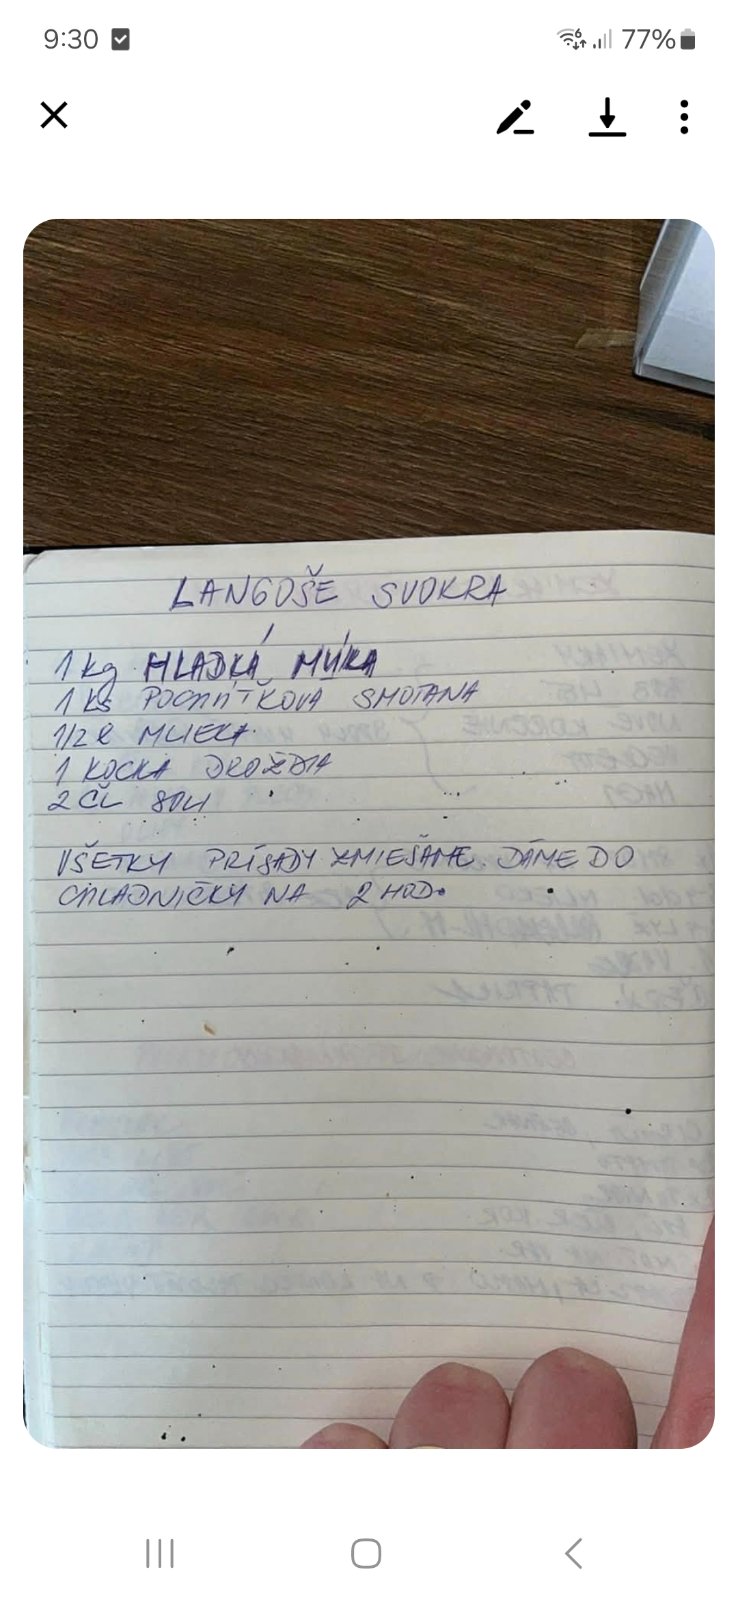 9:30
77%
LANGOŠE SVOKRA
1 kg HLADKÁ MÚKA
1 ks POCHÚŤKOVÁ SMOTANA
1/2 l MLIEKA
1 KOCKA DROŽDIA
2 ČL SOLI
VŠETKY PRÍSADY ZMIEŠAME. DÁME DO
CHLADNIČKY NA 2 HOD.